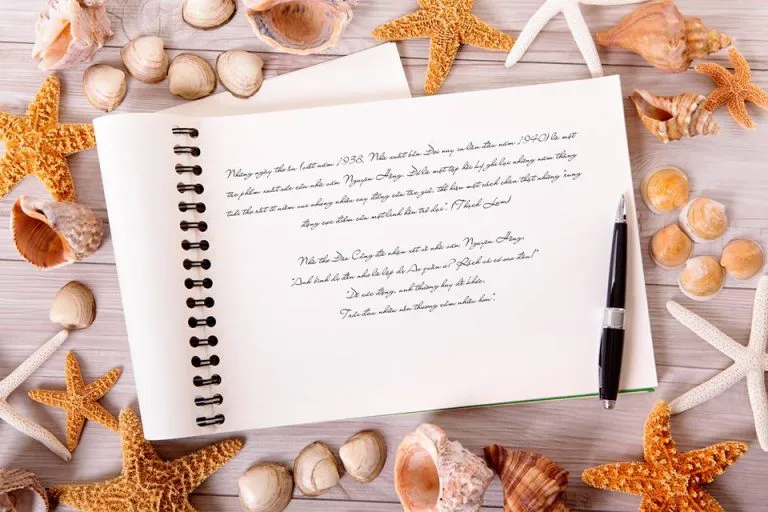 Những ngày thơ ấu (viết năm 1938, Nhà xuất bản Đời nay in lần đầu năm 1940) là một
tác phẩm xuất sắc của nhà văn Nguyên Hồng. Đó là một tập hồi ký ghi lại những năm tháng
tuổi thơ rất ít niềm vui nhưng nhiều cay đắng của tác giả, thể hiện một cách chân thật những "rung
động cực điểm của một linh hồn trẻ dại". (Thạch Lam)
Nhà thơ Đào Cảng đã nhận xét về nhà văn Nguyên Hồng,
"Anh bình dị đến như là lập dị
Áo quần ư? Rách vá có sao đâu!
Dễ xúc động, anh thường hay dễ khóc,
Trải đau nhiều nên thương cảm nhiều hơn".